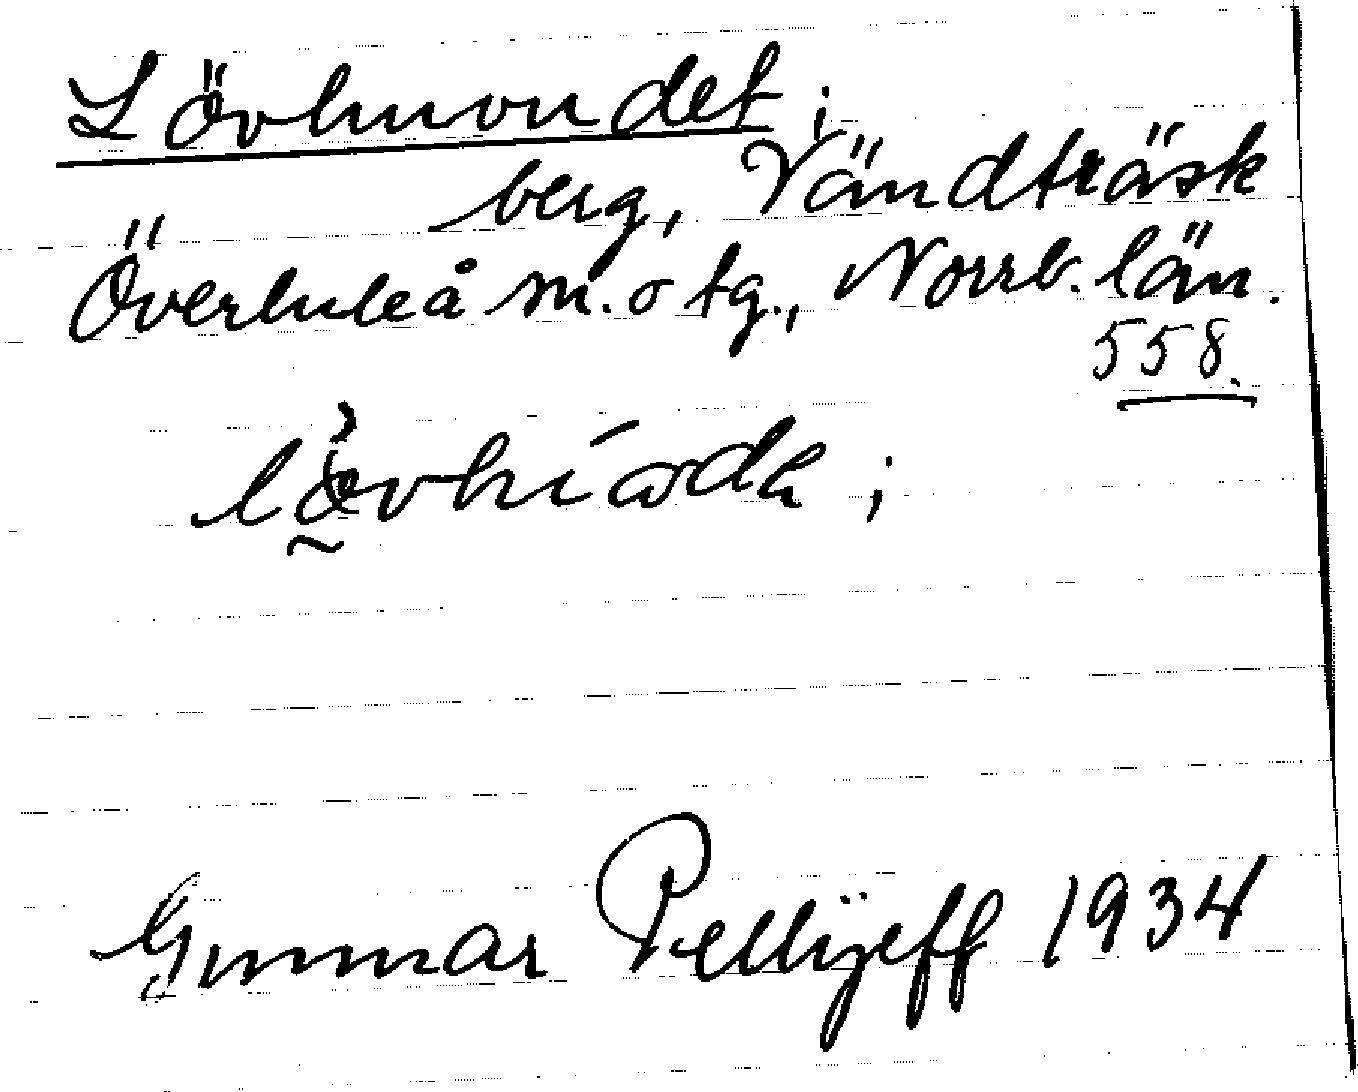 Lövhuvudet;
berg, Vändträsk
Överluleå sn. o tg., Norrb. län.
558.
Gunnar Pellijeff 1934